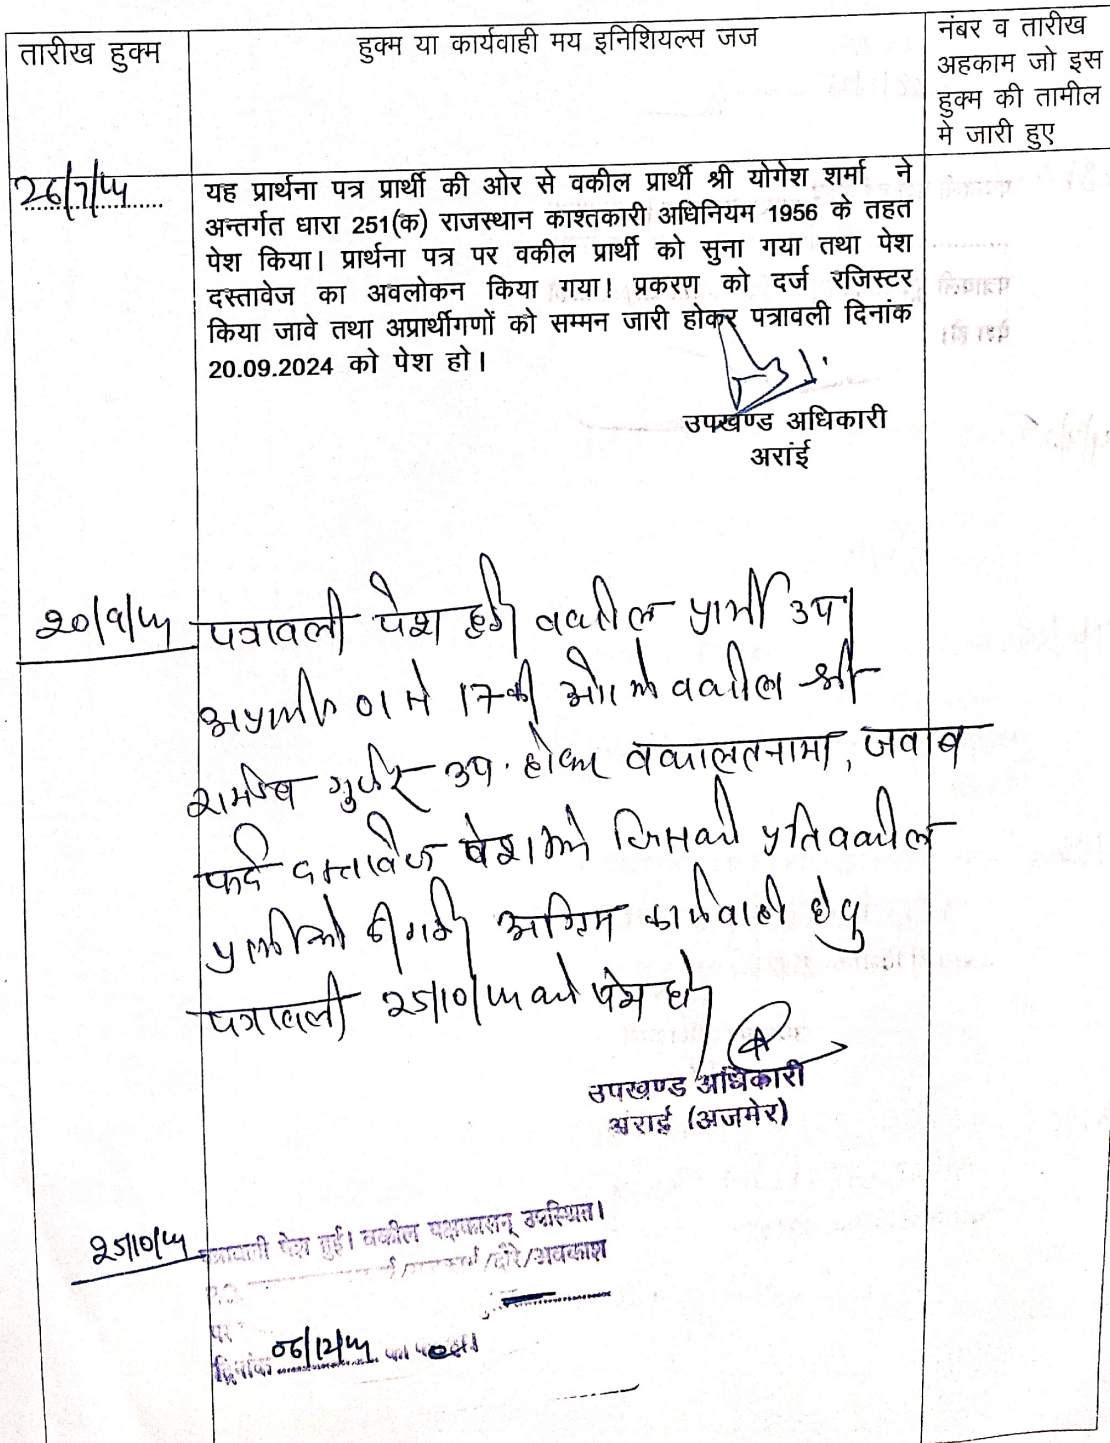 तारीख हुक्म
हुक्म या कार्यवाही मय इनिशियल्स जज
नंबर व तारीख
अहकाम जो इस
हुक्म की तामील
मे जारी हुए
26/7/24
यह प्रार्थना पत्र प्रार्थी की ओर से वकील प्रार्थी श्री योगेश शर्मा ने
अन्तर्गत धारा 251(क) राजस्थान काश्तकारी अधिनियम 1956 के तहत
पेश किया। प्रार्थना पत्र पर वकील प्रार्थी को सुना गया तथा पेश
दस्तावेज का अवलोकन किया गया। प्रकरण को दर्ज रजिस्टर
किया जावे तथा अप्रार्थीगणों को सम्मन जारी होकर पत्रावली दिनांक
20.09.2024 को पेश हो।
उपखण्ड अधिकारी
अरांई
20/9/24
पत्रावली पेश हुई। वकील प्रार्थी उप।
अप्रार्थी 01 से 17 की ओर से वकील श्री
रामदेव गुर्जर उप. होकर वकालतनामा, जवाब
फर्द दस्तावेज पेश किये जिसकी प्रति वकील
प्रार्थी को दी गई। अग्रिम कार्यवाही हेतु
पत्रावली 25/10/24 को पेश हो।
उपखण्ड अधिकारी
अराई (अजमेर)
25/10/24
पत्रावली पेश हुई। वकील पक्षकारान् उपस्थित।
/दौरे/अवकाश
पर
दिनांक 06/12/24